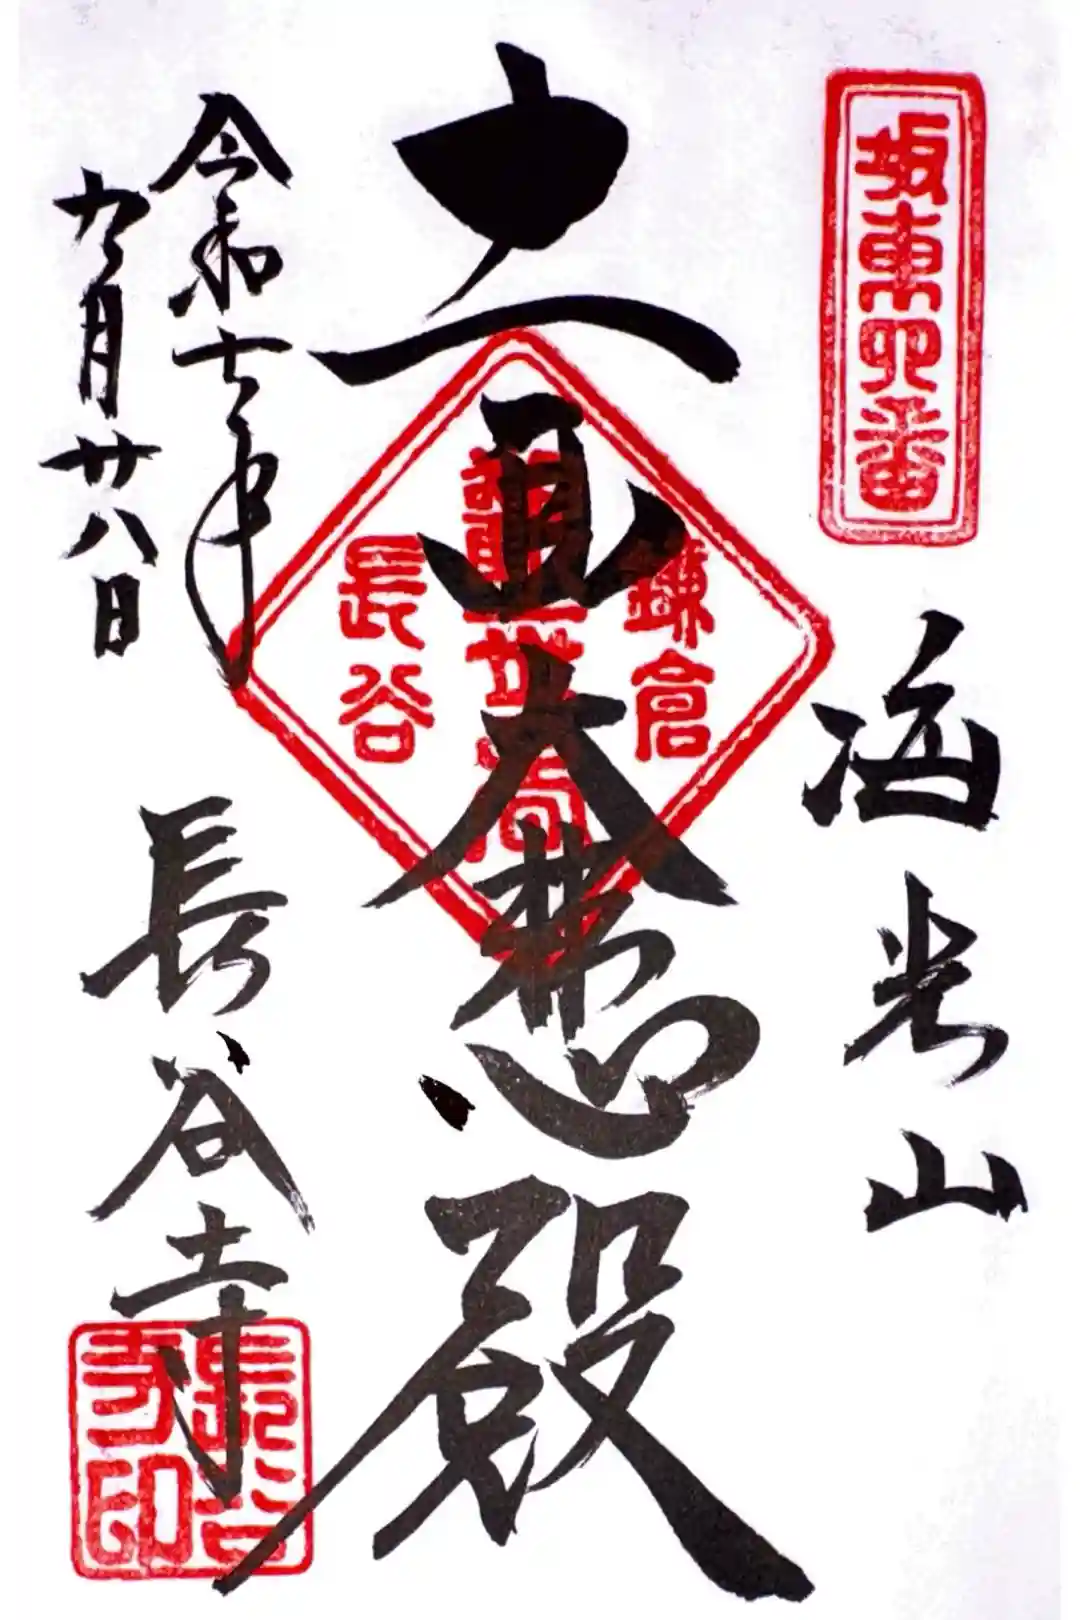 坂東四番
海光山
十一面大悲殿
鎌倉
観世音
長谷
令和七年
九月廿八日
長谷寺
長谷寺印